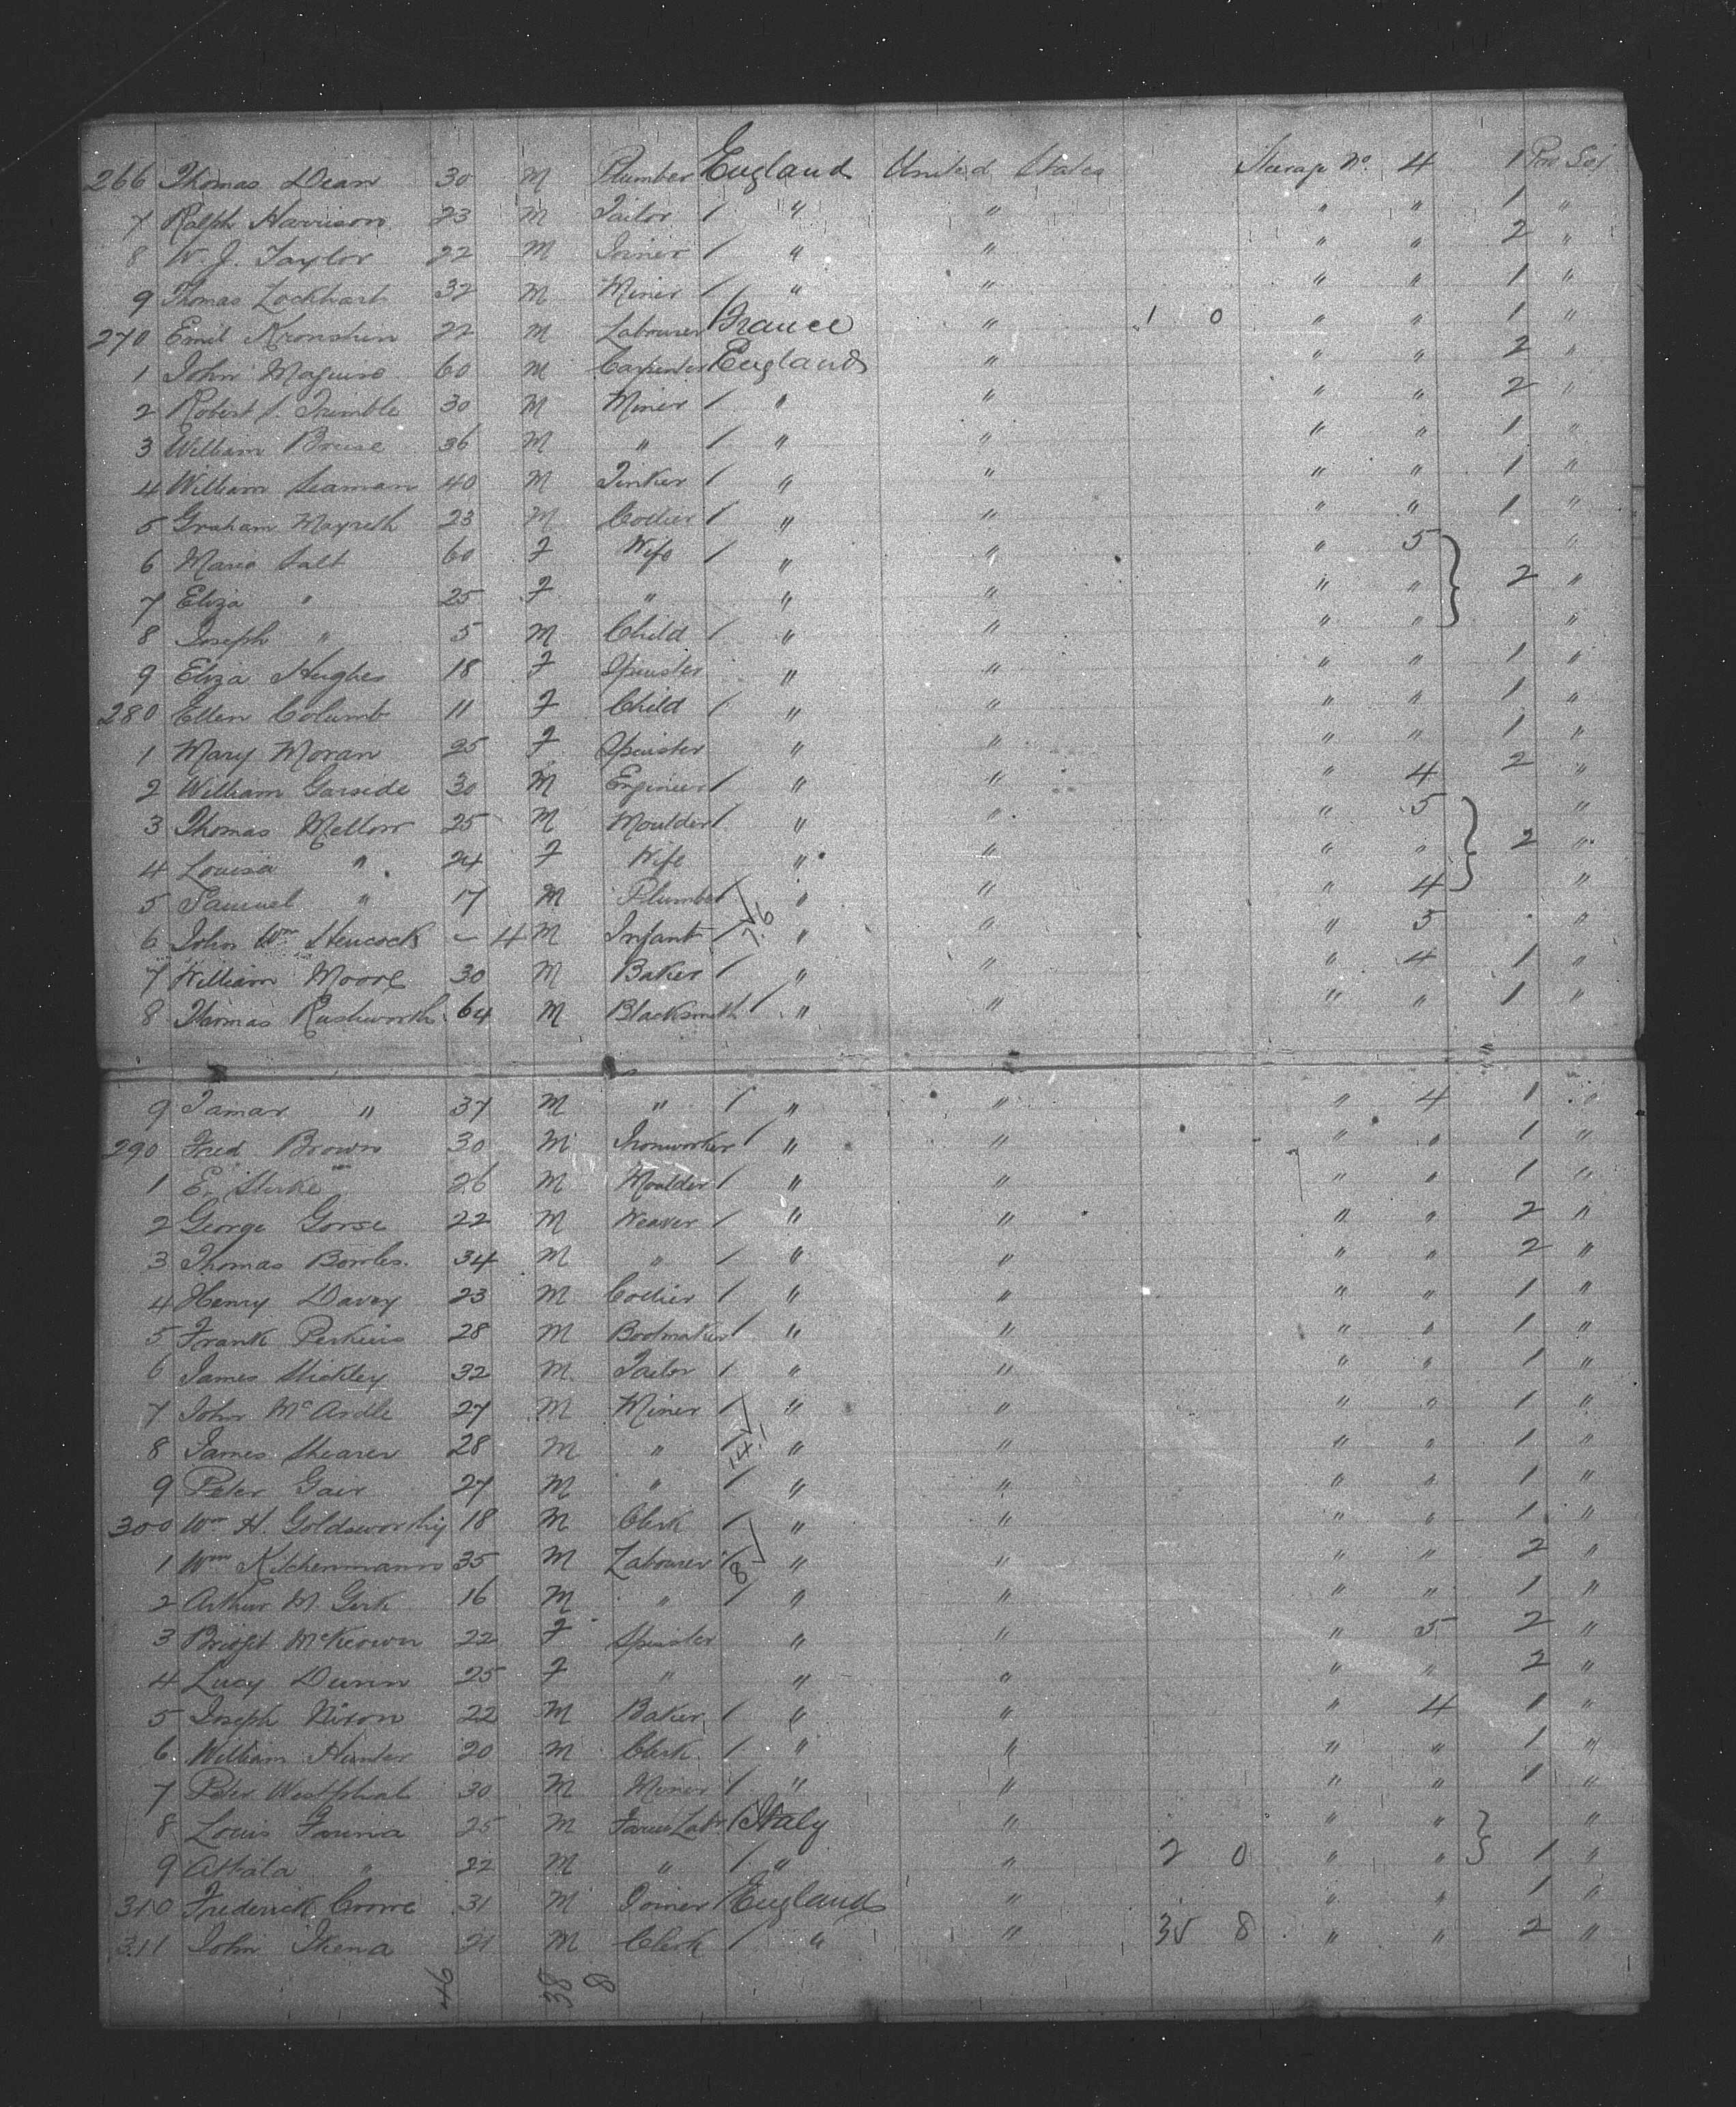 266 Thomas Dean 30 M Plumber England United States Steerage No. 4 1 Pro Soj
7 Ralph Harrison 23 M Tailor / " " " " 1 "
8 W. J. Taylor 22 M Joiner / " " " " 2 "
9 Thomas Lockhart 32 M Miner / " " " " 1 "
270 Emil 22 M Labourer France " 1 0 " " 1 "
1 John Maguire 60 M Carpenter England " " " 2 "
2 Robert S. Trimble 30 M Miner / " " " " 2 "
3 William 36 M " / " " " " 1 "
4 William Seaman 40 M Tinker / " " " " 1 "
5 Graham 23 M Collier / " " " " 1 "
6 Maria Salt 60 F Wife / " " " 5 "
7 Eliza " 25 F " " " " " 2 "
8 Joseph " 5 M Child / " " " " "
9 Eliza Hughes 18 F Spinster " " " " 1 "
280 Ellen Columb 11 F Child / " " " " 1 "
1 Mary Moran 25 F Spinster " " " " 1 "
2 William Garside 30 M Engineer / " " " 4 2 "
3 Thomas Mellor 25 M Moulder / " " " 5 "
4 Louisa " 24 F Wife " " " " 2 "
5 Samuel " 17 M Plumber / " " " 4 "
6 John Wm Hencock - 4 M Infant / 7.6 " " " 5 "
7 William Moore 30 M Baker / " " " 4 1 "
8 Thomas Rushworth 64 M Blacksmith / " " " " 1 "
9 Tamar " 37 M " / " " " 4 1 "
290 Fred Brown 30 M Ironworker / " " " " 1 "
1 E. 26 M Moulder / " " " " 1 "
2 George Gorse 22 M Weaver / " " " " 2 "
3 Thomas Bowles 34 M " / " " " " 2 "
4 Henry Davey 23 M Collier / " " " " 1 "
5 Frank Perkins 28 M Bootmaker / " " " " 1 "
6 James Stickley 32 M Tailor / " " " " 1 "
7 John McArdle 27 M Miner / " " " " 1 "
8 James Shearer 28 M " / 14.1 " " " " 1 "
9 Peter Gair 27 M " / " " " " 1 "
300 Wm H. Goldsworthy 18 M Clerk / " " " " 1 "
1 Wm Kitchenmann 35 M Labourer / 8 " " " " 2 "
2 Arthur M. 16 M " / " " " " 1 "
3 Bridget McKeown 22 F Spinster " " " 5 2 "
4 Lucy Dunn 25 F " " " " " 2 "
5 Joseph Nixon 22 M Baker / " " " 4 1 "
6 William Hunter 20 M Clerk / " " " " 1 "
7 Peter Westphal 30 M Miner / " " " " 1 "
8 Louis Farina 25 M Farm Labr / Italy " " " "
9 " 22 M " / " " 2 0 " " 1 "
310 Frederick Crowe 31 M Joiner / England " " " 1 "
311 John 21 M Clerk / " " 35 8 " " 2 "
46 38 8